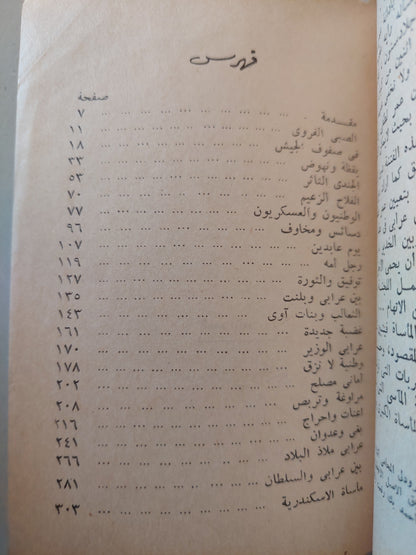 فهرس
صفحة
مقدمة ... ... ... ... ... ... ... ٧
الصبى القروى ... ... ... ... ... ... ١١
فى صفوف الجيش ... ... ... ... ... ... ١٨
يقظة ونهوض ... ... ... ... ... ... ٣٣
الجندى الثائر ... ... ... ... ... ... ٥٣
الفلاح الزعيم ... ... ... ... ... ... ٧٠
الوطنيون والعسكريون ... ... ... ... ... ٧٧
دسائس ومخاوف ... ... ... ... ... ... ٩٦
يوم عابدين ... ... ... ... ... ... ١٠٧
رجل أمة ... ... ... ... ... ... ١١٩
توفيق والثورة ... ... ... ... ... ... ١٢٧
بين عرابى وبلنت ... ... ... ... ... ... ١٣٥
الثعالب وبنات آوى ... ... ... ... ... ١٤٣
غضبة جديدة ... ... ... ... ... ... ١٦١
عرابى الوزير ... ... ... ... ... ... ١٧٠
وطنية لا نزق ... ... ... ... ... ... ١٧٨
أمانى مصلح ... ... ... ... ... ... ٢٠٢
مراوغة وتربص ... ... ... ... ... ... ٢٠٨
اعنات واحراج ... ... ... ... ... ... ٢١٦
بغى وعدوان ... ... ... ... ... ... ٢٤١
عرابى ملاذ البلاد ... ... ... ... ... ٢٦٦
بين عرابى والسلطان ... ... ... ... ... ٢٨١
مأساة الاسكندرية ... ... ... ... ... ٣٠٣